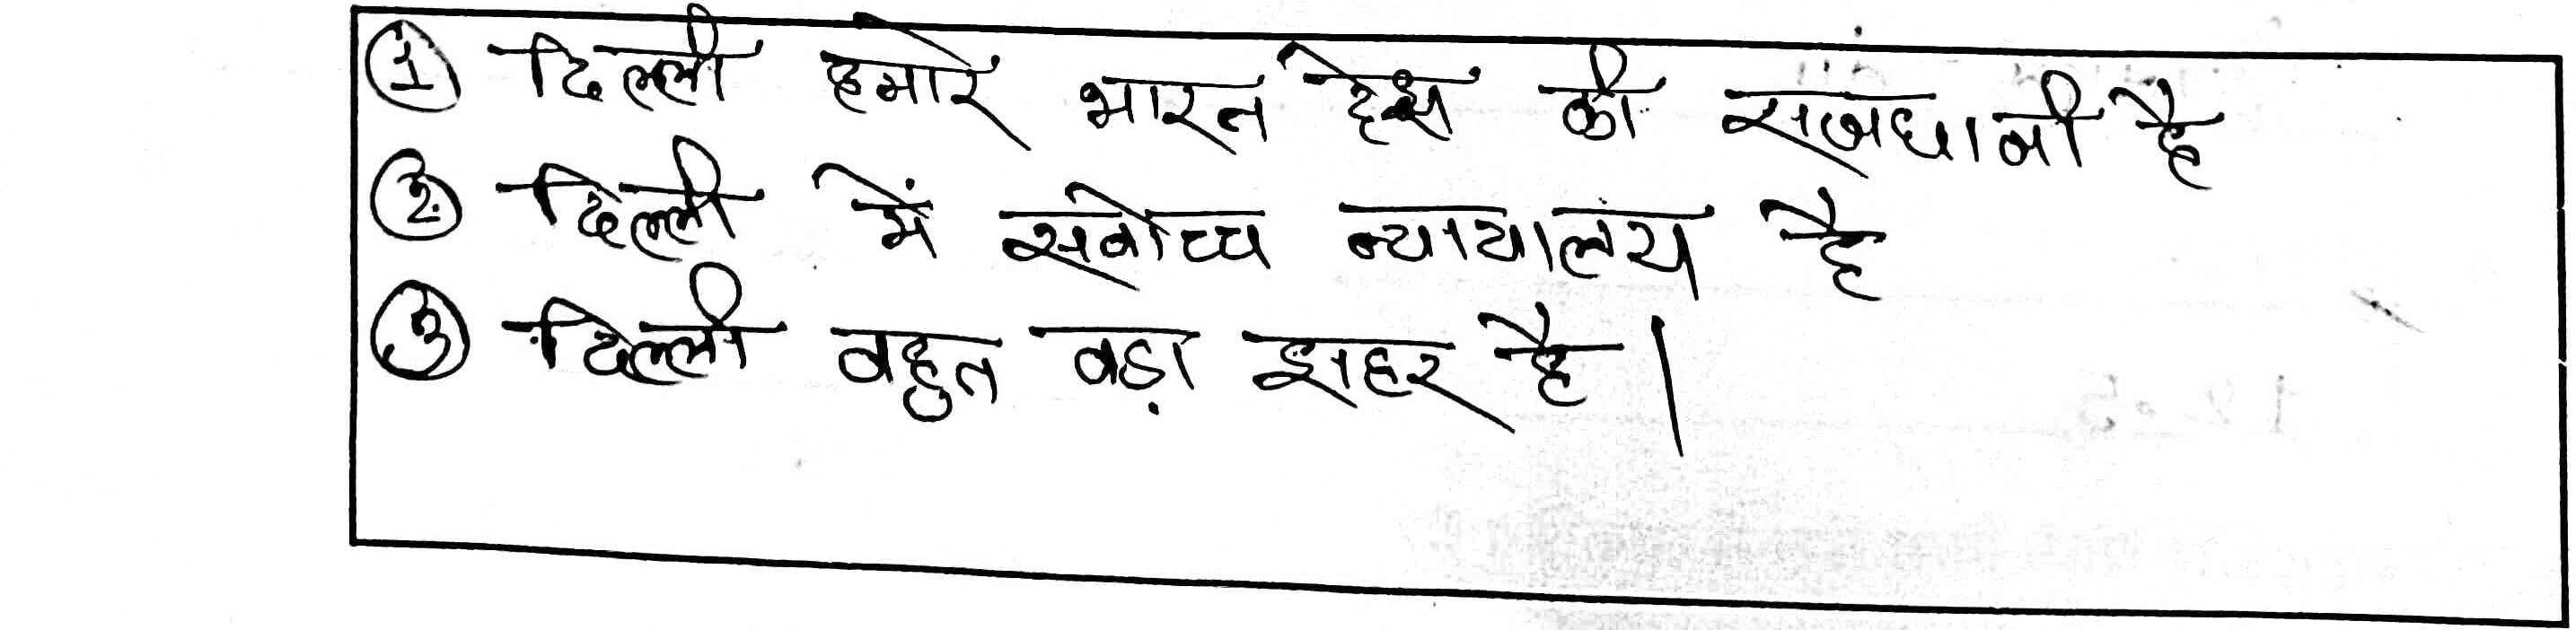 ① दिल्ली हमारे भारत देश की राजधानी है
② दिल्ली में सर्वोच्च न्यायालय है
③ दिल्ली बहुत बड़ा शहर है।